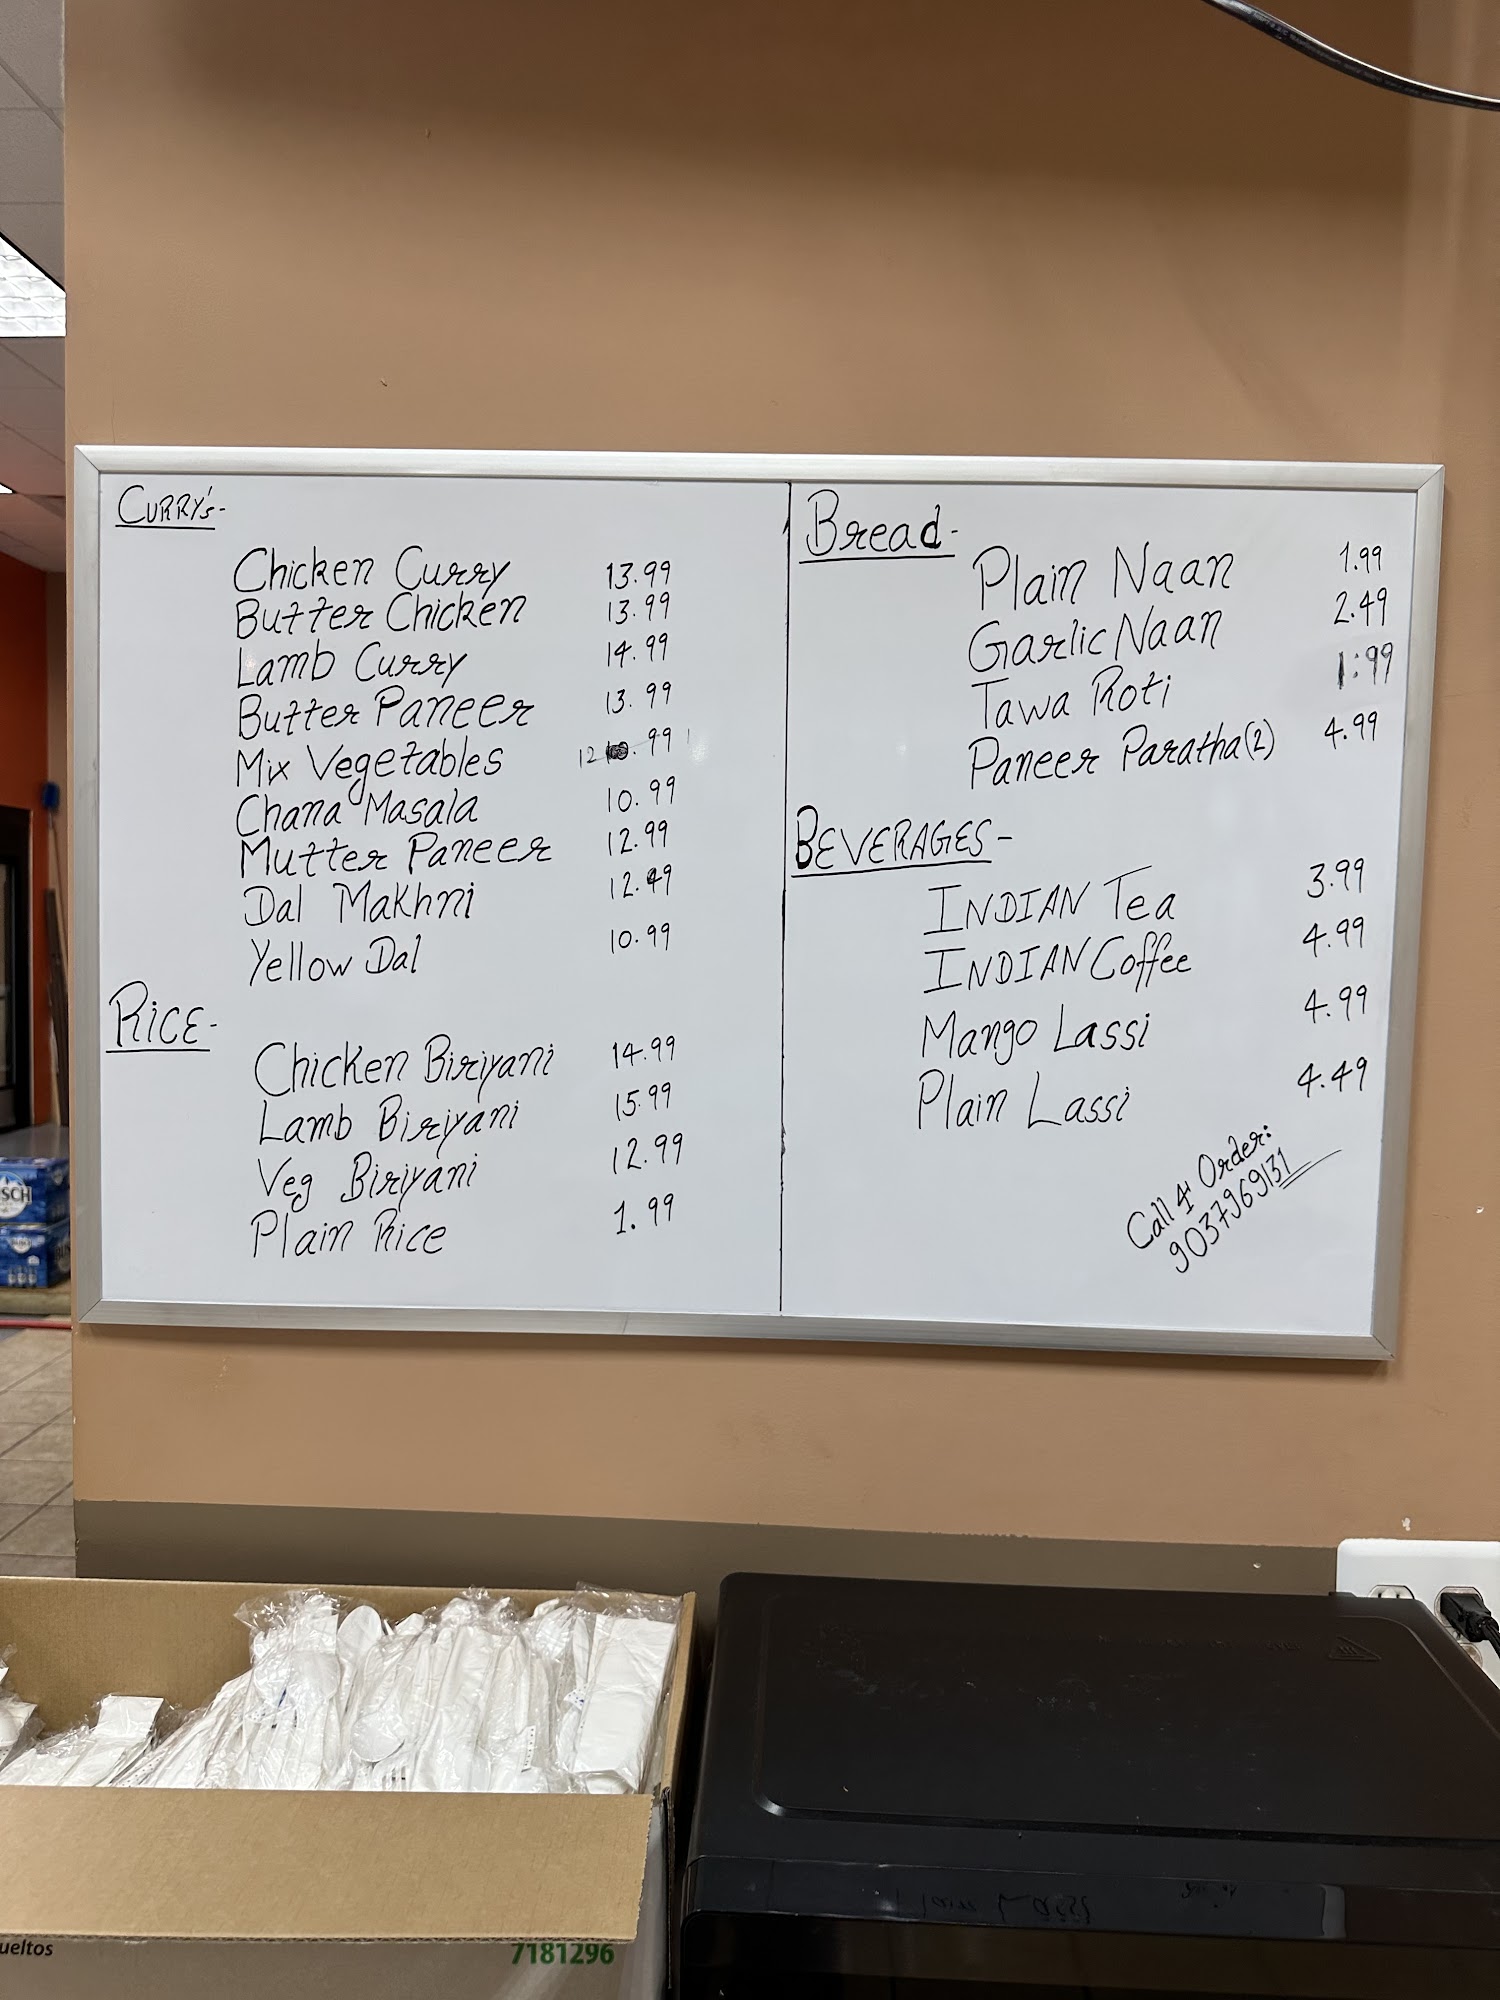 CURRY's-
Chicken Curry 13.99
Butter Chicken 13.99
Lamb Curry 14.99
Butter Paneer 13.99
Mix Vegetables 12.99
Chana Masala 10.99
Mutter Paneer 12.99
Dal Makhni 12.49
Yellow Dal 10.99
RICE-
Chicken Biriyani 14.99
Lamb Biriyani 15.99
Veg Biriyani 12.99
Plain Rice 1.99
Bread-
Plain Naan 1.99
Garlic Naan 2.49
Tawa Roti 1:99
Paneer Paratha(2) 4.99
BEVERAGES-
INDIAN Tea 3.99
INDIAN Coffee 4.99
Mango Lassi 4.99
Plain Lassi 4.49
Call 4 Order:
9037969131
ueltos
7181296